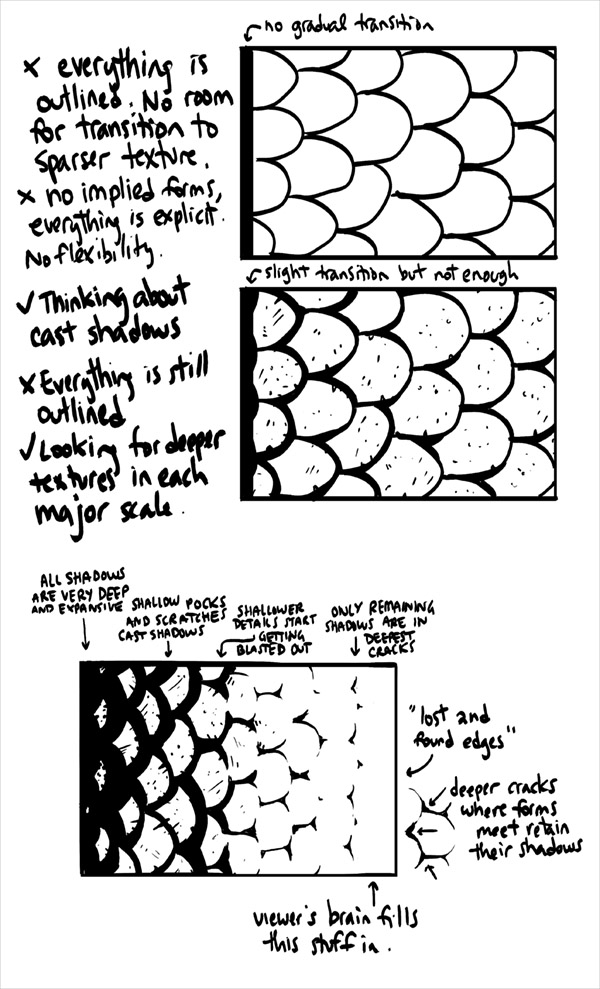 no gradual transition
x everything is
outlined. No room
for transition to
sparser texture.
x no implied forms,
everything is explicit.
No flexibility.
slight transition but not enough
✓ Thinking about
cast shadows
x Everything is still
outlined
✓ Looking for deeper
textures in each
major scale.
ALL SHADOWS
ARE VERY DEEP
AND EXPANSIVE
SHALLOW POCKS
AND SCRATCHES
CAST SHADOWS
SHALLOWER
DETAILS START
GETTING
BLASTED OUT
ONLY REMAINING
SHADOWS ARE IN
DEEPEST
CRACKS
"lost and
found edges"
deeper cracks
where forms
meet retain
their shadows
viewer's brain fills
this stuff in.